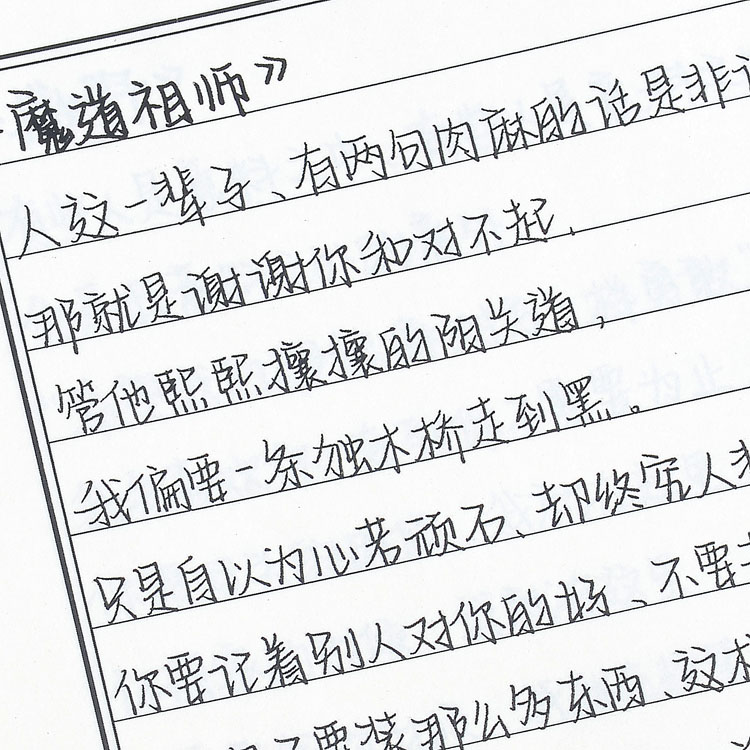 魔道祖师》
人这一辈子、有两句肉麻的话是非
那就是谢谢你和对不起.
管他熙熙攘攘的阳关道,
我偏要一条独木桥走到黑。
只是自以为心若顽石、却终究人非
你要记着别人对你的好、不要
要装那么多东西、这